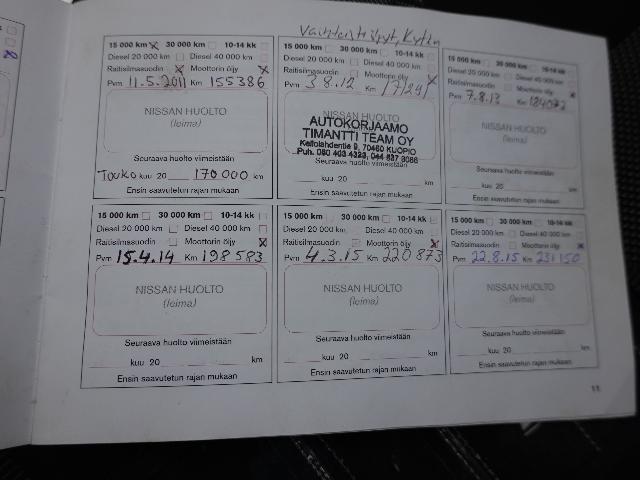 Vaihteistoöljyt, Kytkin
15 000 km 30 000 km 10-14 kk
Diesel 20 000 km Diesel 40 000 km
Raitisilmasuodin Moottorin öljy
Pvm 11.5.2011 Km 155386
NISSAN HUOLTO
(leima)
Seuraava huolto viimeistään
Touko kuu 20 170000 km
Ensin saavutetun rajan mukaan
15 000 km 30 000 km 10-14 kk
Diesel 20 000 km Diesel 40 000 km
Raitisilmasuodin Moottorin öljy
Pvm 3 8.12 Km
NISSAN HUOLTO
AUTOKORJAAMO
TIMANTTI TEAM OY
Kellolahdentie 9, 70460 KUOPIO
Seuraava huolto viimeistään
kuu 20 km
Ensin saavutetun rajan mukaan
15 000 km 30 000 km 10-14 kk
Diesel 20 000 km Diesel 40 000 km
Raitisilmasuodin Moottorin öljy
Pvm 7.8.13 Km 184072
NISSAN HUOLTO
(leima)
Seuraava huolto viimeistään
kuu 20 km
Ensin saavutetun rajan mukaan
15 000 km 30 000 km 10-14 kk
Diesel 20 000 km Diesel 40 000 km
Raitisilmasuodin Moottorin öljy
Pvm 15.4.14 Km 198583
NISSAN HUOLTO
(leima)
Seuraava huolto viimeistään
kuu 20 km
Ensin saavutetun rajan mukaan
15 000 km 30 000 km 10-14 kk
Diesel 20 000 km Diesel 40 000 km
Raitisilmasuodin Moottorin öljy
Pvm 4.3.15 Km 220873
NISSAN HUOLTO
(leima)
Seuraava huolto viimeistään
kuu 20 km
Ensin saavutetun rajan mukaan
15 000 km 30 000 km 10-14 kk
Diesel 20 000 km Diesel 40 000 km
Raitisilmasuodin Moottorin öljy
Pvm 22.8.15 Km 231150
NISSAN HUOLTO
(leima)
Seuraava huolto viimeistään
kuu 20 km
Ensin saavutetun rajan mukaan
11